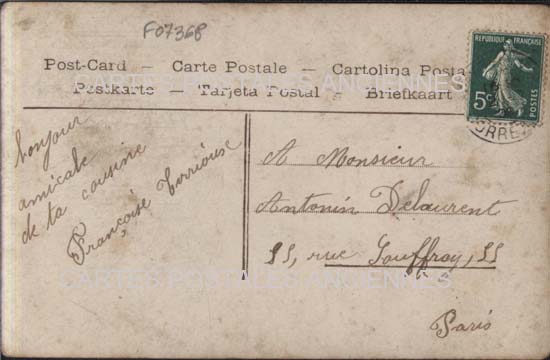 F07368
Post-Card — Carte Postale — Cartolina Posta
Postkarte — Tarjeta Postal — Briefkaart
REPUBLIQUE FRANÇAISE
5c
POSTES
CORRE
bonjour
amicale
de ta cousine
Françoise Terrioux
A Monsieur
Antonin Delaurent
55, rue Gouffroy, 55
Paris
CARTES POSTALES ANCIENNES
CARTES POSTALES ANCIENNES